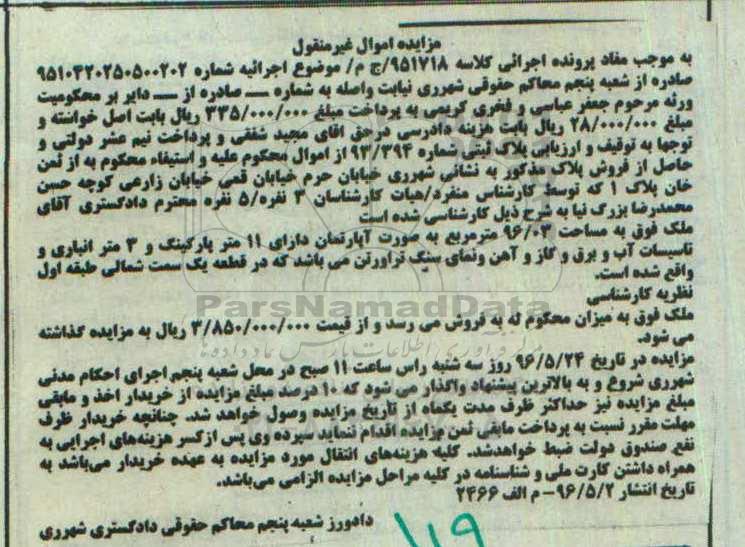 مزایده اموال غیرمنقول
به موجب مفاد پرونده اجرائی کلاسه ۹۵۱۷۱۸/ج م/ موضوع اجرائیه شماره ۹۵۱۰۴۲۰۲۵۰۵۰۰۲۰۲
صادره از شعبه پنجم محاکم حقوقی شهرری نیابت واصله به شماره ــــ صادره از ــــ دایر بر محکومیت
ورثه مرحوم جعفر عباسی و فخری کریمی به پرداخت مبلغ ۳۳۵/۰۰۰/۰۰۰ ریال بابت اصل خواسته و
مبلغ ۲۸/۰۰۰/۰۰۰ ریال بابت هزینه دادرسی درحق اقای مجید شفقی و پرداخت نیم عشر دولتی و
توجها به توقیف و ارزیابی پلاک ثبتی شماره ۹۳/۳۹۴ از اموال محکوم علیه و استیفاء محکوم به از ثمن
حاصل از فروش پلاک مذکور به نشانی شهرری خیابان حرم خیابان قمی خیابان زارعی کوچه حسن
خان پلاک ۱ که توسط کارشناس منفرد/هیات کارشناسان ۳ نفره/۵ نفره محترم دادگستری آقای
محمدرضا بزرگ نیا به شرح ذیل کارشناسی شده است
ملک فوق به مساحت ۹۶/۰۳ مترمربع به صورت آپارتمان دارای ۱۱ متر پارکینگ و ۳ متر انباری و
تاسیسات آب و برق و گاز و آهن ونمای سنگ تراورتن می باشد که در قطعه یک سمت شمالی طبقه اول
واقع شده است.
نظریه کارشناسی
ملک فوق به میزان محکوم له به فروش می رسد و از قیمت ۳/۸۵۰/۰۰۰/۰۰۰ ریال به مزایده گذاشته
می شود.
مزایده در تاریخ ۹۶/۵/۲۴ روز سه شنبه راس ساعت ۱۱ صبح در محل شعبه پنجم اجرای احکام مدنی
شهرری شروع و به بالاترین پیشنهاد واگذار می شود که ۱۰ درصد مبلغ مزایده از خریدار اخذ و مابقی
مبلغ مزایده نیز حداکثر ظرف مدت یکماه از تاریخ مزایده وصول خواهد شد. چنانچه خریدار ظرف
مهلت مقرر نسبت به پرداخت مابقی ثمن مزایده اقدام ننماید سپرده وی پس ازکسر هزینه‌های اجرایی به
نفع صندوق دولت ضبط خواهدشد. کلیه هزینه‌های انتقال مورد مزایده به عهده خریدار می‌باشد به
همراه داشتن کارت ملی و شناسنامه در کلیه مراحل مزایده الزامی می‌باشد.
تاریخ انتشار ۹۶/۵/۲- م الف ۲۴۶۶
دادورز شعبه پنجم محاکم حقوقی دادگستری شهرری
۱۱۹
ParsNamadData